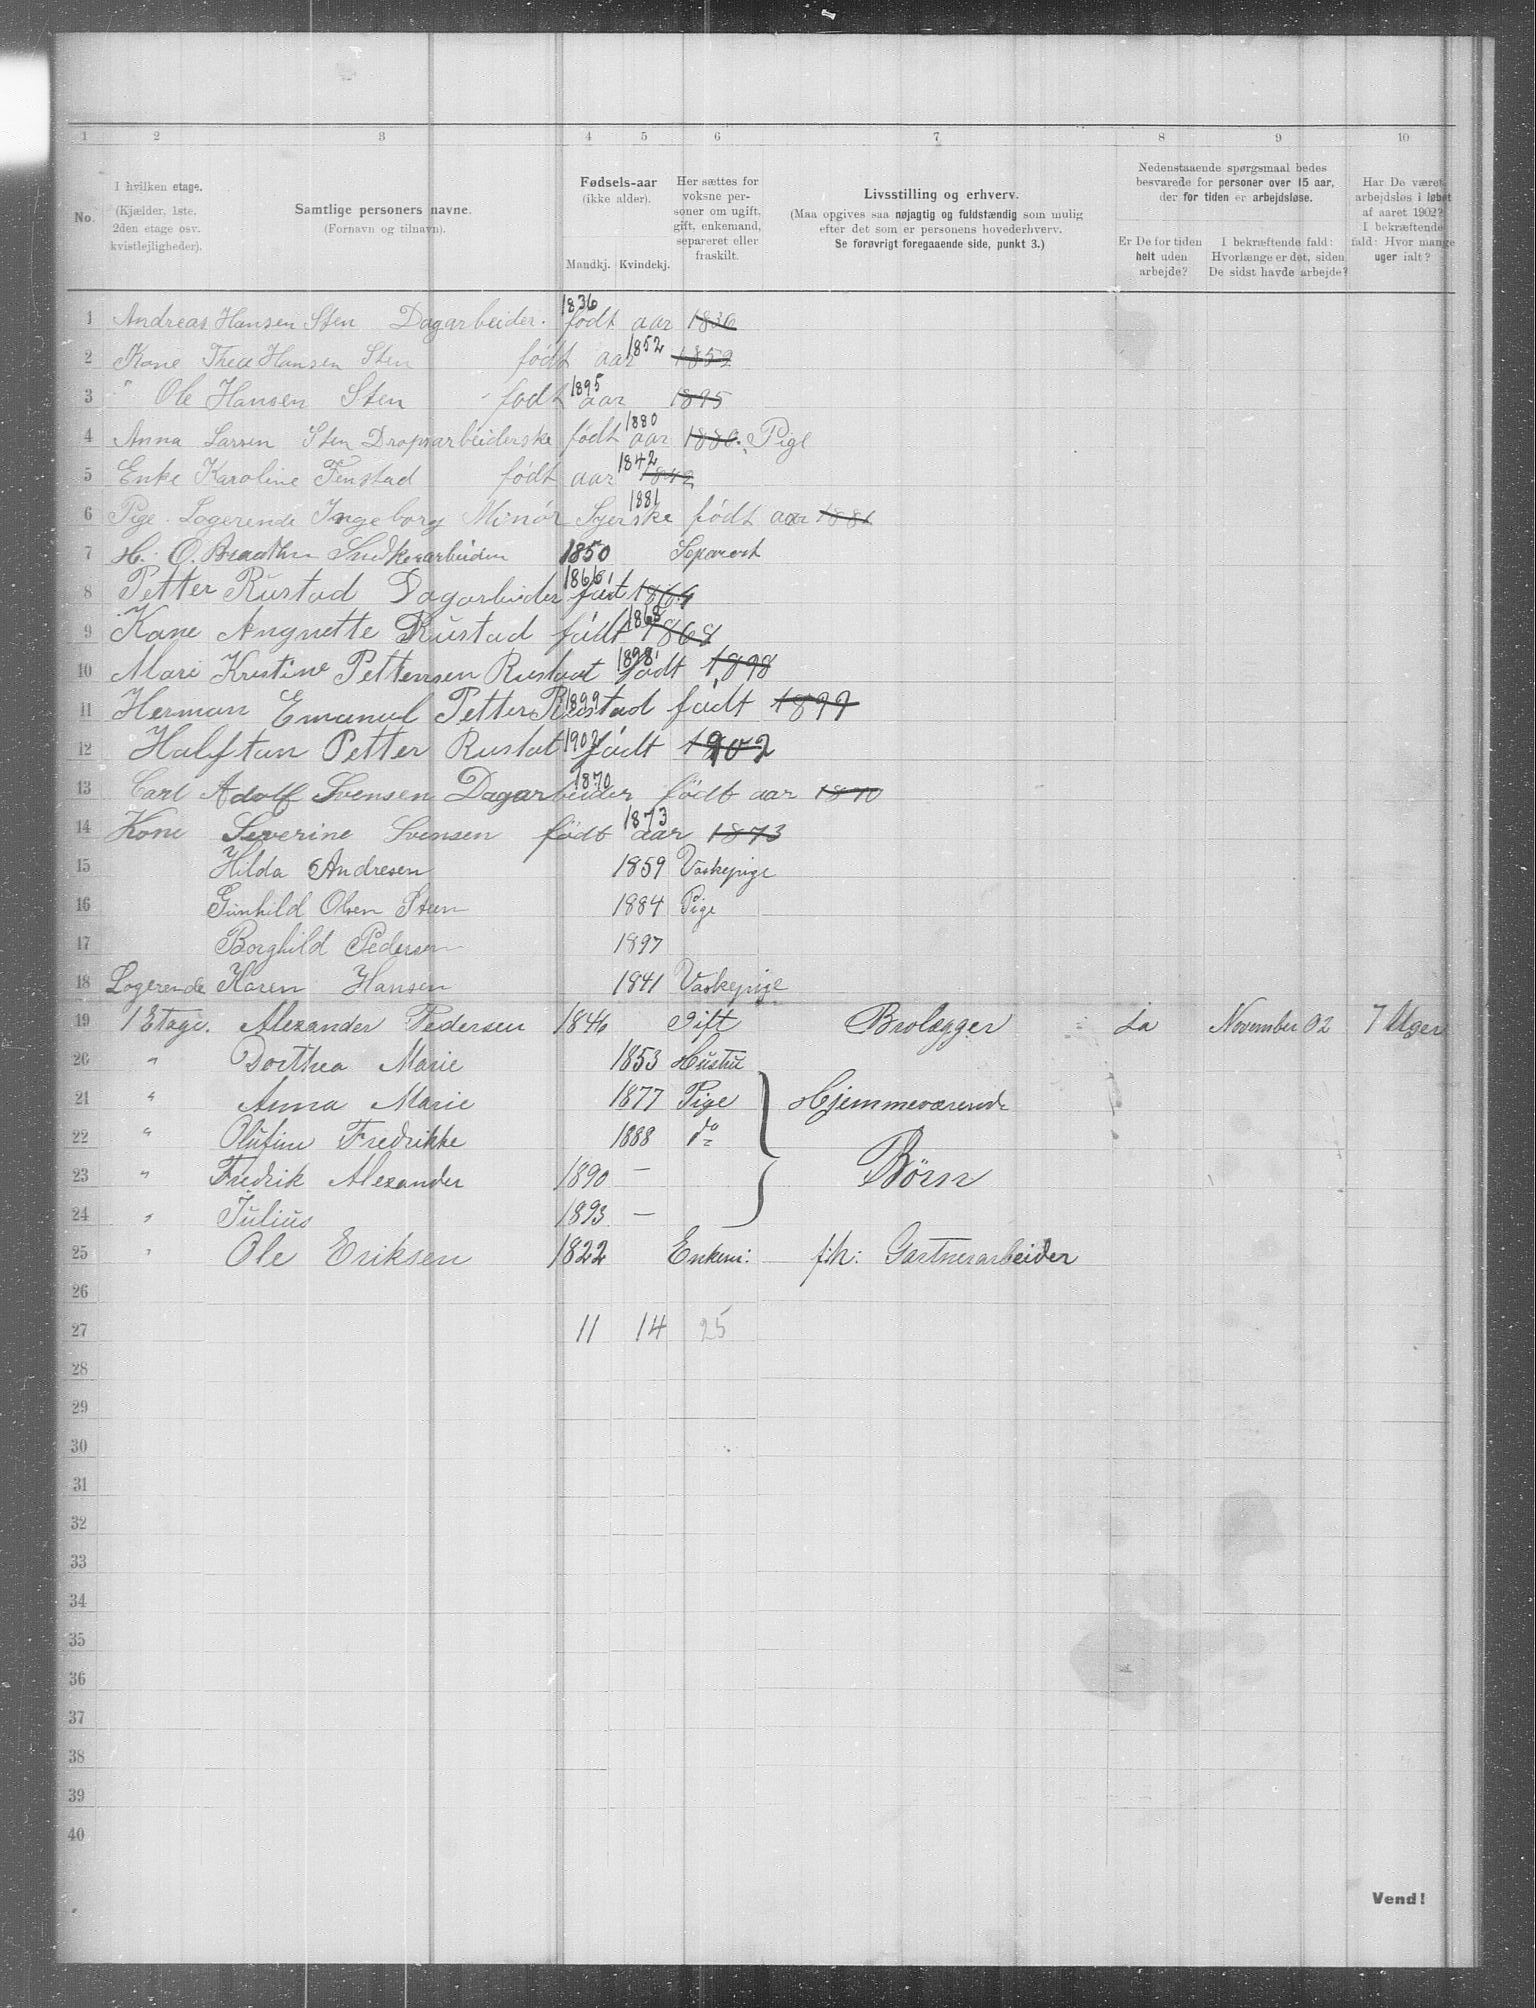 1 2 3 4 5 6 7 8 9 10
No.
I hvilken etage.
(Kjælder, 1ste.
2den etage osv.
kvistlejligheder).
Samtlige personers navne.
(Fornavn og tilnavn).
Fødsels-aar
(ikke alder).
Mandkj. Kvindekj.
Her sættes for
voksne per-
soner om ugift,
gift, enkemand,
separeret eller
fraskilt.
Livsstilling og erhverv.
(Maa opgives saa nøjagtig og fuldstændig som mulig
efter det som er personens hovederhverv.
Se forøvrigt foregaaende side, punkt 3.)
Nedenstaaende spørgsmaal bedes
besvarede for personer over 15 aar,
der for tiden er arbejdsløse.
Er De for tiden
helt uden
arbejde?
I bekræftende fald:
Hvorlænge er det, siden
De sidst havde arbejde?
Har De været
arbejdsløs i løbet
af aaret 1902?
I bekræftende
fald: Hvor mange
uger ialt?
1 Andreas Hansen Sten Dagarbeider. 1836 født aar 1836
2 Kone Thea Hansen Sten født aar 1852 1852
3 " Ole Hansen Sten født 1895 aar 1895
4 Anna Larsen Sten født 1880 aar 1880. Pige
5 Enke Karoline Finstad født aar 1842 1842
6 Pige. Logerende Ingeborg Minör Syerske 1881 født aar 1881
7 H. O. Braathen Snedkerarbeider 1850 Separert
8 Petter Rustad Dagarbeider 1866 født 1864
9 Kone Angnette Rustad født 1868 1868
10 Mari Kristine Pettersen Rustad 1898 født 1898
11 Herman Emanuel Petter Rustad 1899 født 1899
12 Halftan Petter Rustat 1902 født 1902
13 Carl Adolf Svensen Dagarbeider 1870 født aar 1870
14 Kone Severine Svensen født 1873 aar 1873
15 Hilda Andresen 1859 Vaskepige
16 Gunhild Olsen Steen 1884 Pige
17 Borghild Pedersen 1897
18 Logerende Karen Hansen 1841 Vaskepige
19 1 Etage. Alexander Pedersen 1846 Gift Brolægger Ja November 02 7 Uger
20 " Dorthea Marie 1853 Hustru
21 " Anna Marie 1877 Pige Hjemmeværende
22 " Olufine Fredrikke 1888 do
23 " Fredrik Alexander 1890 — Børn
24 " Julius 1893 —
25 " Ole Eriksen 1822 Enkem: f:h: Gartnerarbeider
26
27 11 14 25
28
29
30
31
32
33
34
35
36
37
38
39
40
Vend!